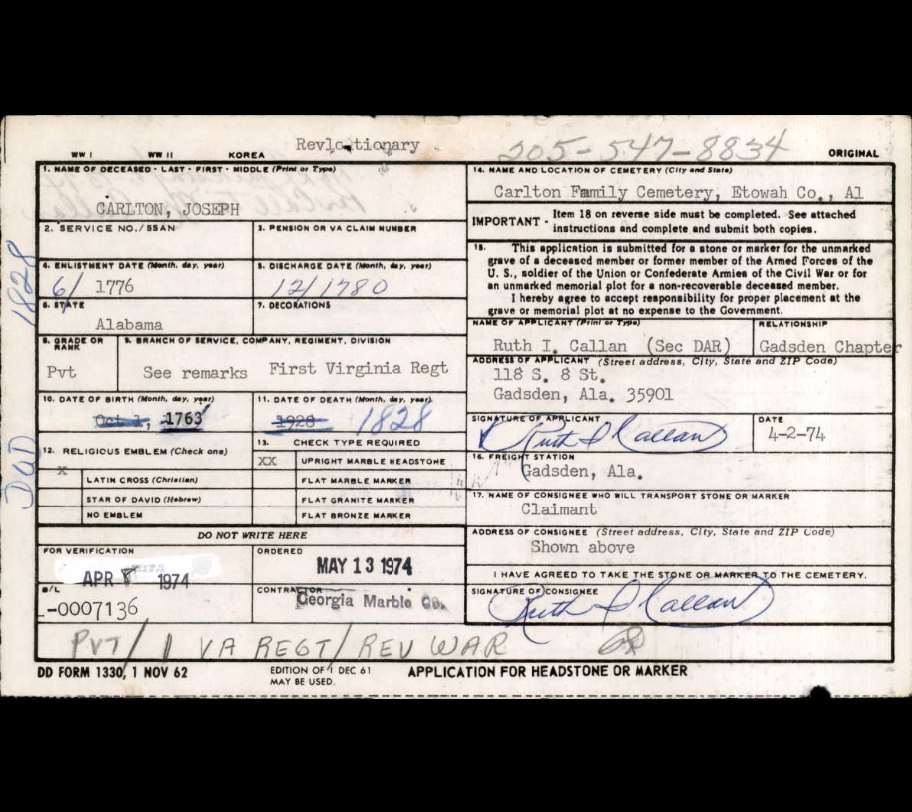 Revlootionary
205-547-8834
WW I WW II KOREA ORIGINAL
1. NAME OF DECEASED - LAST - FIRST - MIDDLE (Print or Type)
CARLTON, JOSEPH
2. SERVICE NO./SSAN
3. PENSION OR VA CLAIM NUMBER
4. ENLISTMENT DATE (Month, day, year)
6/ 1776
5. DISCHARGE DATE (Month, day, year)
12/1780
6. STATE
Alabama
7. DECORATIONS
8. GRADE OR RANK
Pvt
9. BRANCH OF SERVICE, COMPANY, REGIMENT, DIVISION
See remarks First Virginia Regt
10. DATE OF BIRTH (Month, day, year)
Oct 1, 1763
11. DATE OF DEATH (Month, day, year)
1928 1828
12. RELIGIOUS EMBLEM (Check one)
X
LATIN CROSS (Christian)
STAR OF DAVID (Hebrew)
NO EMBLEM
13. CHECK TYPE REQUIRED
XX UPRIGHT MARBLE HEADSTONE
FLAT MARBLE MARKER
FLAT GRANITE MARKER
FLAT BRONZE MARKER
DO NOT WRITE HERE
FOR VERIFICATION
APR 8 1974
ORDERED
MAY 13 1974
B/L
-0007136
CONTRACTOR
Georgia Marble Co.
14. NAME AND LOCATION OF CEMETERY (City and State)
Carlton Family Cemetery, Etowah Co., Al
IMPORTANT - Item 18 on reverse side must be completed. See attached
instructions and complete and submit both copies.
15. This application is submitted for a stone or marker for the unmarked
grave of a deceased member or former member of the Armed Forces of the
U. S., soldier of the Union or Confederate Armies of the Civil War or for
an unmarked memorial plot for a non-recoverable deceased member.
I hereby agree to accept responsibility for proper placement at the
grave or memorial plot at no expense to the Government.
NAME OF APPLICANT (Print or Type)
Ruth I. Callan (Sec DAR)
RELATIONSHIP
Gadsden Chapter
ADDRESS OF APPLICANT (Street address, City, State and ZIP Code)
118 S. 8 St.
Gadsden, Ala. 35901
SIGNATURE OF APPLICANT
Ruth I Callan
DATE
4-2-74
16. FREIGHT STATION
Gadsden, Ala.
17. NAME OF CONSIGNEE WHO WILL TRANSPORT STONE OR MARKER
Claimant
ADDRESS OF CONSIGNEE (Street address, City, State and ZIP Code)
Shown above
I HAVE AGREED TO TAKE THE STONE OR MARKER TO THE CEMETERY.
SIGNATURE OF CONSIGNEE
Ruth I Callan
PVT/ 1 VA REGT/ REV WAR
DD FORM 1330, 1 NOV 62
EDITION OF 1 DEC 61
MAY BE USED.
APPLICATION FOR HEADSTONE OR MARKER
DOD 1828